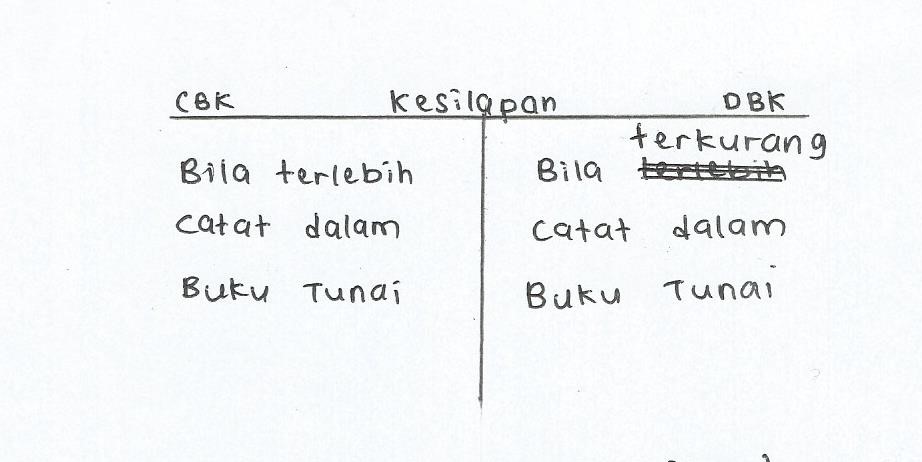 CBK Kesilapan DBK
terkurang
Bila terlebih Bila terlebih
catat dalam catat dalam
Buku Tunai Buku Tunai